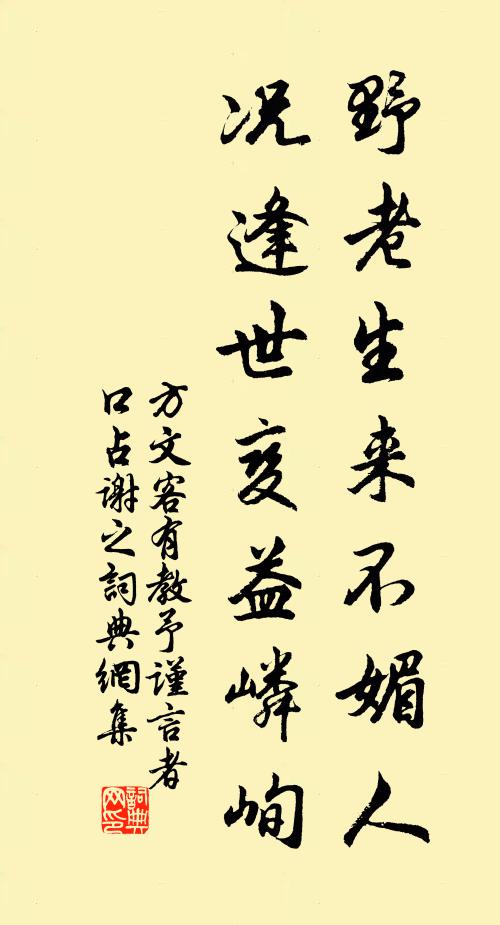 野老生来不媚人
况逢世变益嶙峋
方文客有教予谨言者
口占谢之詞典網集
詞典网印